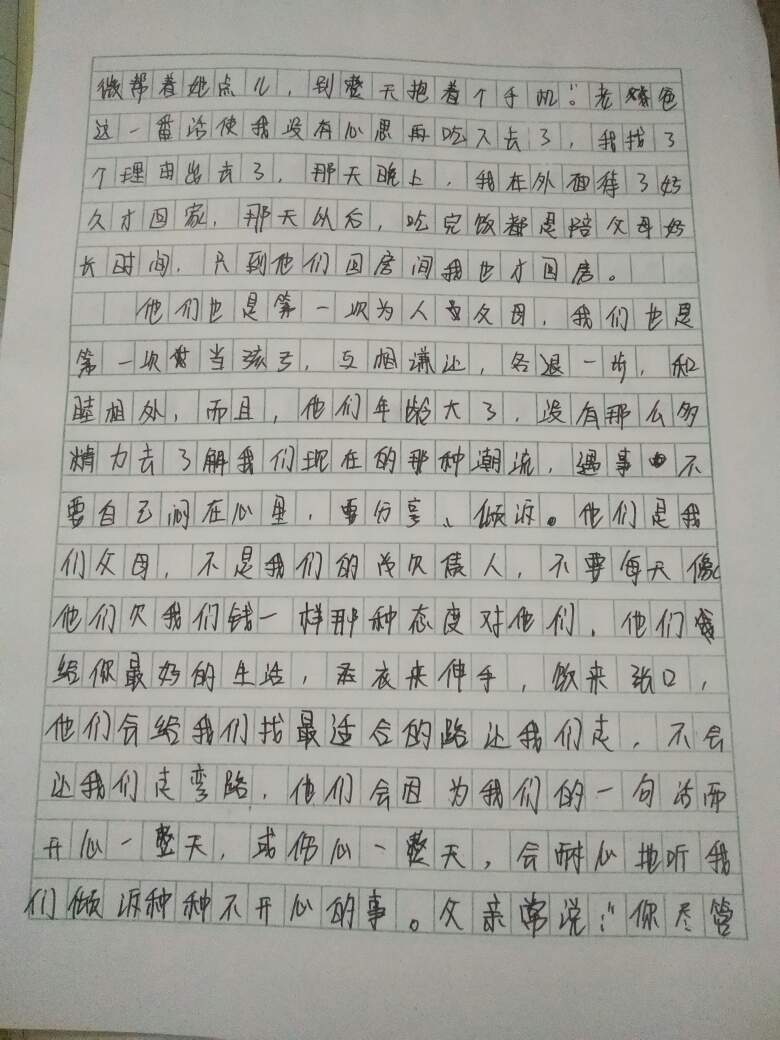 微帮着她点儿，别整天抱着个手机。"老爸
这一番话使我没有心思再吃下去了，我找了
个理由出去了，那天晚上，我在外面待了好
久才回家，那天以后，吃完饭都是陪父母好
长时间，只到他们回房间我也才回房。
他们也是第一次为人父母，我们也是
第一次当孩子，互相谦让，各退一步，和
睦相处，而且，他们年龄大了，没有那么多
精力去了解我们现在的那种潮流，遇事不
要自己闷在心里，要分享、倾诉。他们是我
们父母，不是我们的欠债人，不要每天像
他们欠我们钱一样那种态度对他们，他们
给你最好的生活，衣来伸手，饭来张口，
他们会给我们找最适合的路让我们走，不会
让我们走弯路，他们会因为我们的一句话而
开心一整天，或伤心一整天，会耐心地听我
们倾诉种种不开心的事。父亲常说："你尽管